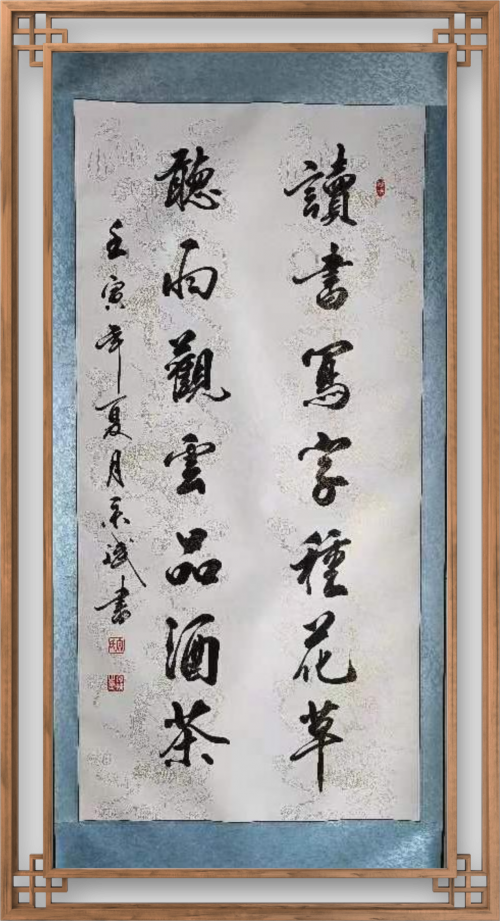 讀書寫字種花草
聽雨觀雲品酒茶
壬寅年夏月
書